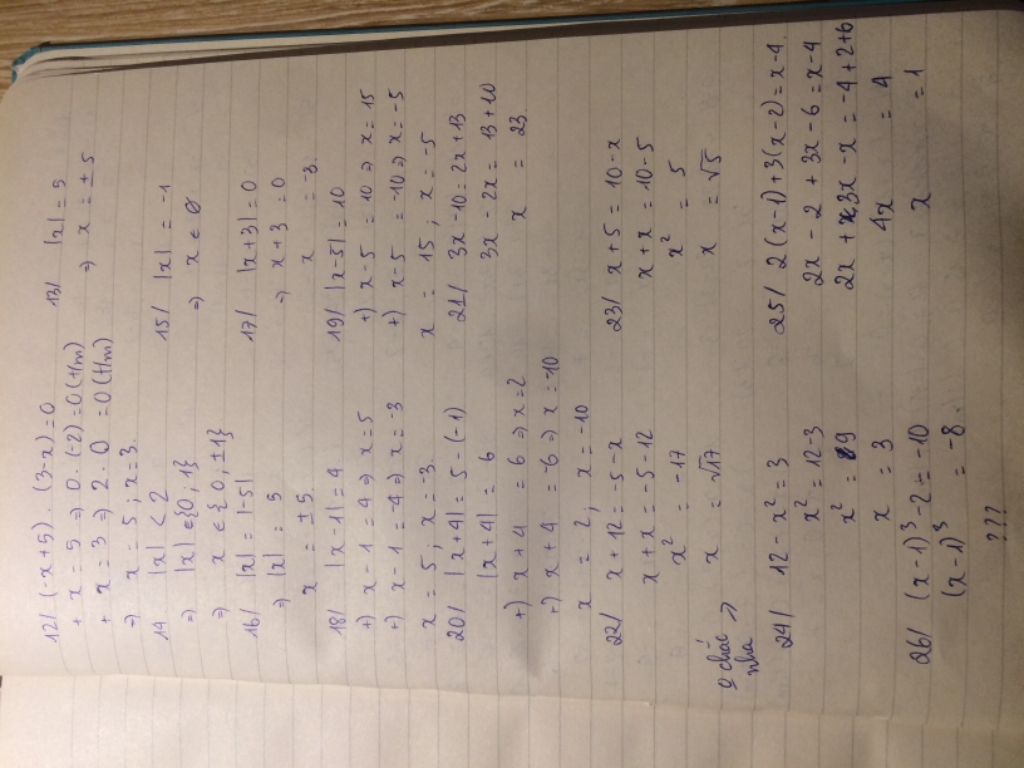 12/ (-x+5) . (3-x) = 0
+ x = 5 => 0 . (-2) = 0 (t/m)
+ x = 3 => 2 . 0 = 0 (t/m)
=> x = 5 ; x = 3.
13/ |x| = 5
=> x = ± 5
14 |x| < 2
=> |x| ∈ {0, 1}
=> x ∈ {0, ±1}
15/ |x| = -1
=> x ∈ ∅
16/ |x| = |-5|
=> |x| = 5
x = ±5.
17/ |x+3| = 0
=> x + 3 = 0
x = -3.
18/ |x-1| = 4
+) x - 1 = 4 => x = 5
+) x - 1 = -4 => x = 3
x = 5, x = -3.
19/ |x-5| = 10
+) x - 5 = 10 => x = 15
+) x - 5 = -10 => x = -5
x = 15 ; x = -5
20/ |x+4| = 5 - (-1)
|x+4| = 6
+) x + 4 = 6 => x = 2
+) x + 4 = -6 => x = -10
x = 2, x = -10
21/ 3x - 10 = 2x + 13
3x - 2x = 13 + 10
x = 23
22/ x + 12 = -5 - x
x + x = -5 - 12
x² = -17
x = √17
23/ x + 5 = 10 - x
x + x = 10 - 5
x² = 5
x = √5
0 chắc nha →
24/ 12 - x² = 3
x² = 12 - 3
x² = 9
x = 3
25/ 2(x-1) + 3(x-2) = x - 4
2x - 2 + 3x - 6 = x - 4
2x + 3x - x = -4 + 2 + 6
4x = 4
x = 1
26/ (x-1)³ - 2 = -10
(x-1)³ = -8.
???